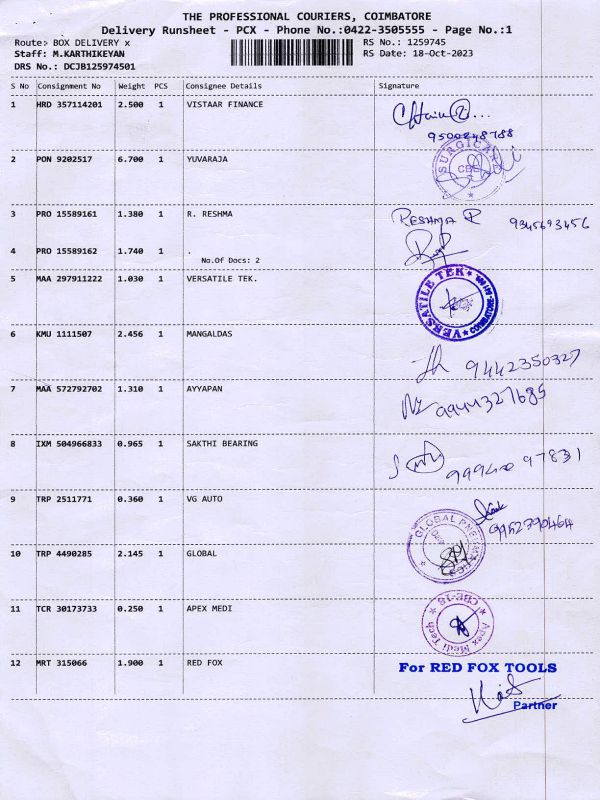 THE PROFESSIONAL COURIERS, COIMBATORE
Delivery Runsheet - PCX - Phone No.:0422-3505555 - Page No.:1
Route:- BOX DELIVERY x RS No.: 1259745
Staff: M.KARTHIKEYAN RS Date: 18-Oct-2023
DRS No.: DCJB125974501
S No Consignment No Weight PCS Consignee Details Signature
1 HRD 357114201 2.500 1 VISTAAR FINANCE
9500248788
2 PON 9202517 6.700 1 YUVARAJA
SURGICAL
CBE
3 PRO 15589161 1.380 1 R. RESHMA RESHMA R 9345693456
4 PRO 15589162 1.740 1 .
No.Of Docs: 2
5 MAA 297911222 1.030 1 VERSATILE TEK.
VERSATILE TEK COIMBATORE
6 KMU 1111507 2.456 1 MANGALDAS
9442350327
7 MAA 572792702 1.310 1 AYYAPAN 9944327685
8 IXM 504966833 0.965 1 SAKTHI BEARING
9 TRP 2511771 0.360 1 VG AUTO
9952790464
GLOBAL
10 TRP 4490285 2.145 1 GLOBAL
11 TCR 30173733 0.250 1 APEX MEDI
Apex Medi Tech CBE-18
12 MRT 315066 1.900 1 RED FOX
For RED FOX TOOLS
Partner